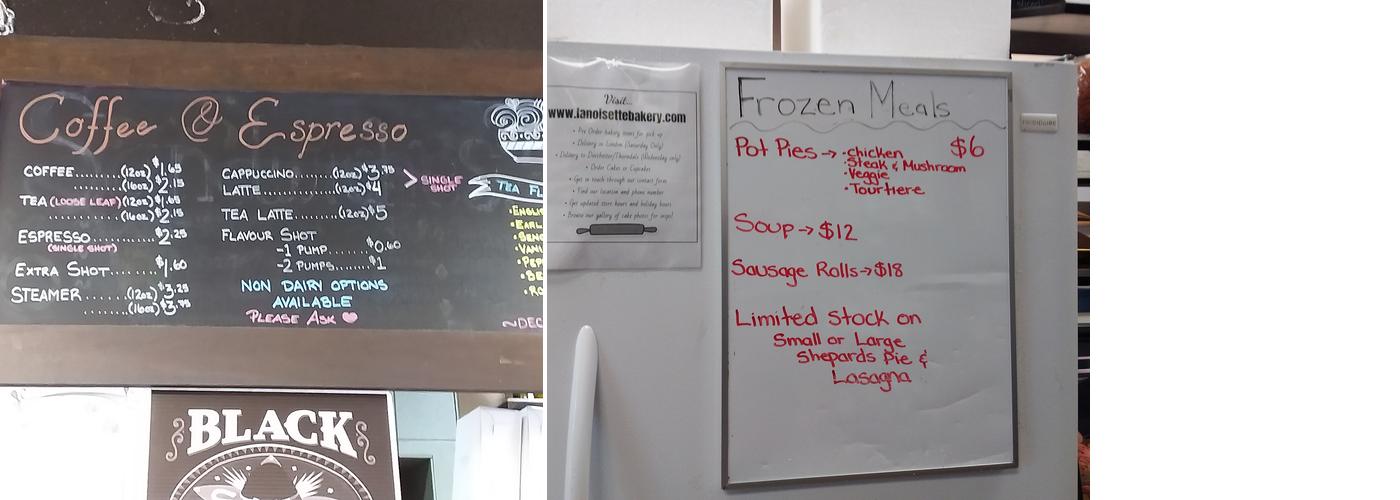 Coffee @ Espresso
COFFEE.........(12oz) $1.65
.........(16oz) $2.15
TEA (LOOSE LEAF) (12oz) $1.65
.........(16oz) $2.15
ESPRESSO.......... $2.25
(SINGLE SHOT)
EXTRA SHOT........ $1.60
STEAMER......(12oz) $3.25
......(16oz) $3.75
CAPPUCCINO....(12oz) $3.75
LATTE..........(12oz) $4
> SINGLE SHOT
TEA LATTE........(12oz) $5
FLAVOUR SHOT
-1 PUMP...... $0.60
-2 PUMPS...... $1
NON DAIRY OPTIONS
AVAILABLE
PLEASE ASK
TEA FL
•ENGLIS
•EARL
•SENC
•VANI
•PEP
•BE
•RO
~DEC
BLACK
Visit...
www.lanoisettebakery.com
• Pre Order bakery items for pick up
• Delivery in London (Saturday Only)
• Delivery to Dorchester/Thorndale (Wednesday only)
• Order Cakes or Cupcakes
• Get in touch through our contact form
• Find our location and phone number
• Get updated store hours and holiday hours
• Browse our gallery of cake photos for inspo!
Frozen Meals
Pot Pies → •chicken $6
•Steak & Mushroom
•Veggie
•Tourtiere
Soup → $12
Sausage Rolls → $18
Limited Stock on
Small or Large
Shepards Pie &
Lasagna
FRIGIDAIRE